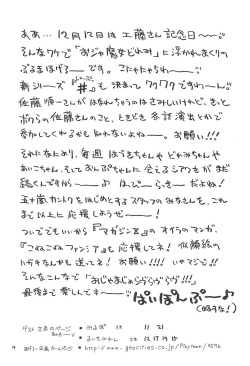 ああ… 12月12日は 工藤さん記念日〜〜
そんなワケで「おジャ魔女どれみ」に浮かれまくりの
ぶるまほげろーです。こにゃにゃちわー〜
新シリーズ『#』も 決まって ワクワクですわ〜ん
佐藤順一さんが はなれちゃうのは さみしいけれど、きっと
ボクらの佐藤さんのこと、ときどき 各話演出とかで
参加してくれるかも知れないよねー。お願い!!!
それになにより、毎週 はづきちゃんや どれみちゃんや
あいこちゃん、そしておんぷちゃんに 会えるシアワセがまだ
続くんですから――♪ は、ぴ、らっきーだよね!
五十嵐カントクをはじめとするスタッフのみなさんを、これ
まで以上に 応援しようぜー!
ついででもいいから『マガジンZ』のオイラのマンガ、
『こねこねファンシア』も応援してネ! 似顔絵の
ハガキなんかも送ってネ! お願い!!! いやマジで!!
そんなこんなで「おじゃまじょらヴらヴらヴ!!!」
最後まで楽しんでネ〜
ぱいぽんぷー♪
(略すな!)
ゲストさまのページ
11 21
12 13 14 15
4
http://www.geocities.co.jp/Playtown/8596